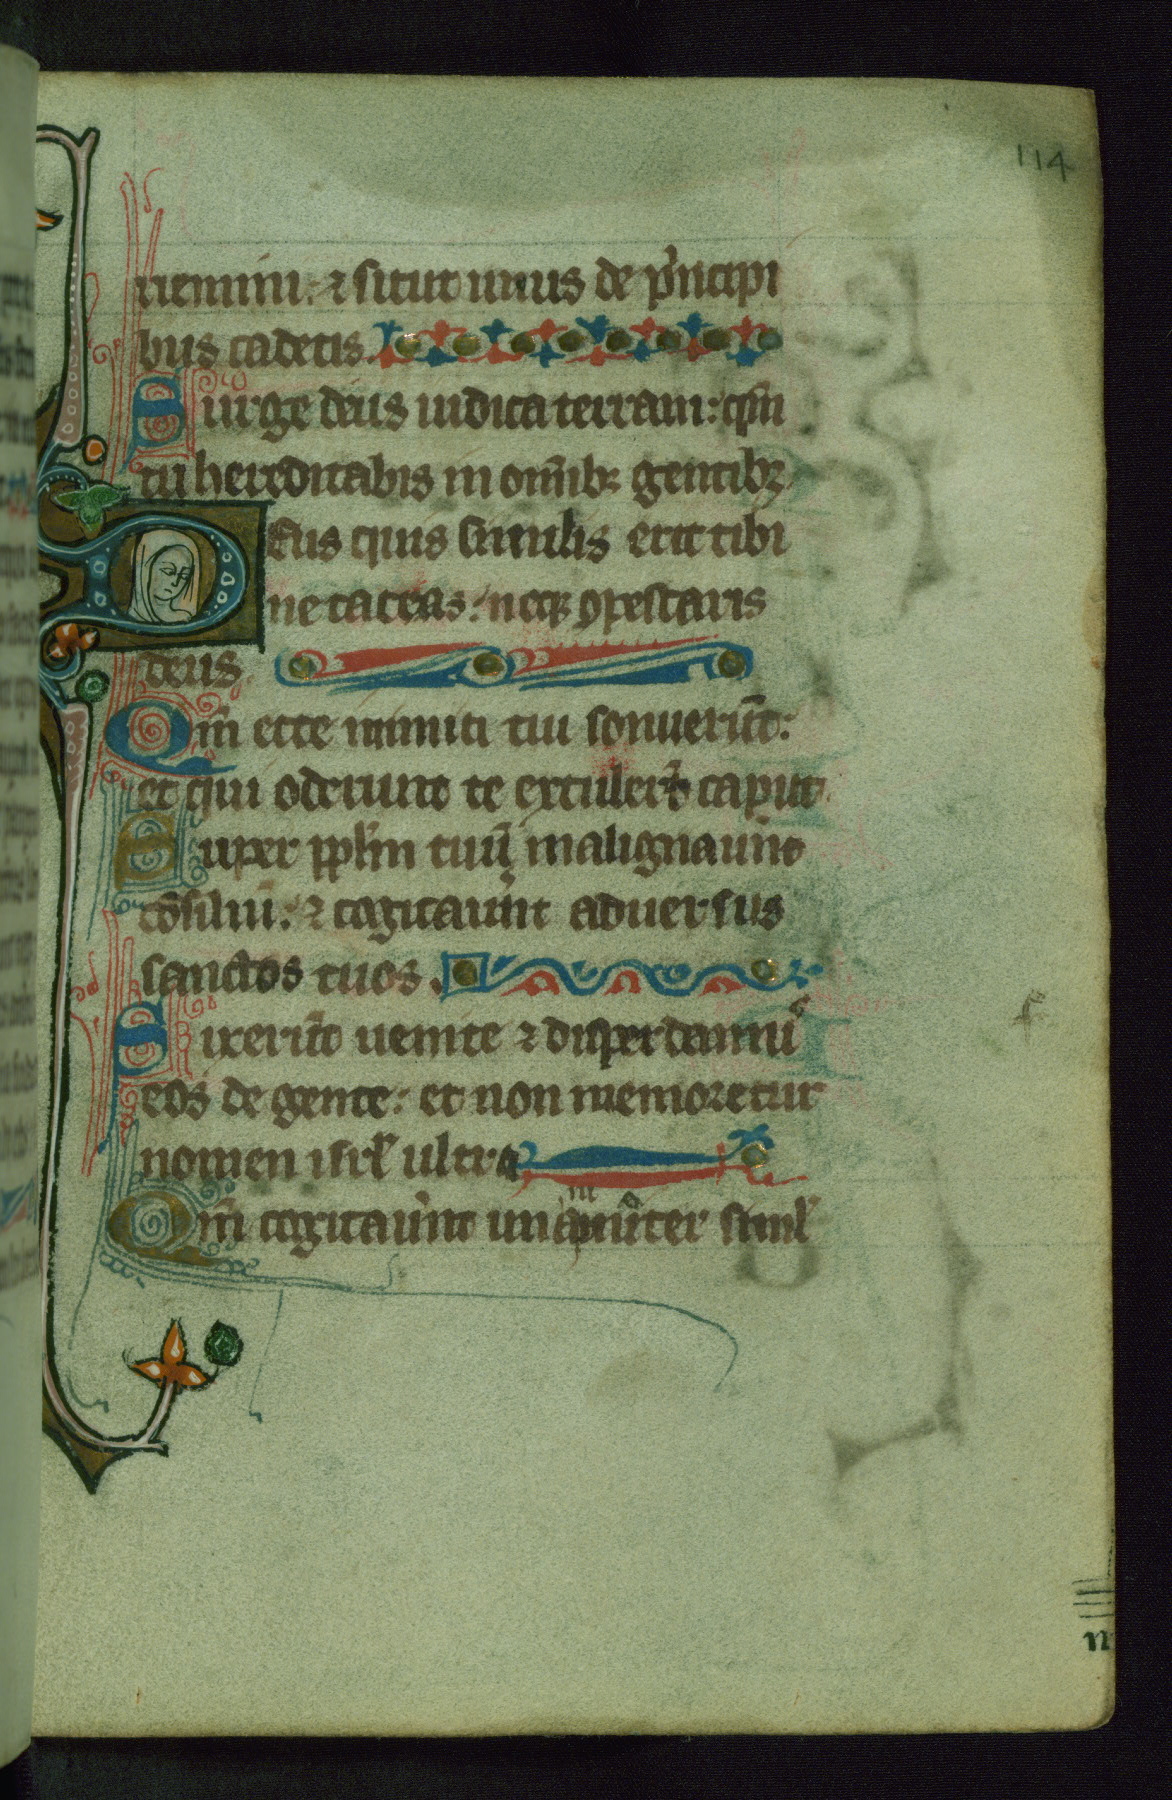 114
riemini. ⁊ sicut unus de p̍ncipi
bus cadetis.
Surge deus iudica terram: qm̅
tu hereditabis in om̅ib; gentibꝫ.
Deus quis similis erit tibi
ne taceas: neqꝫ ꝯpescaris
deus
Qm̅ ecce inimici tui sonueru̅t:
et qui oderunt te extuler̅t caput.
Super ppl̅m tuu̅ malignaue̅nt
co̅siliu̅. ⁊ cogitaue̅nt adversus
sanctos tuos.
Dixeru̅t uenite ⁊ disperdamus
eos de gente: et non memoretur
nomen isrl̅ ultra
Qm̅ cogitaue̅nt unanim̅iter siml̅